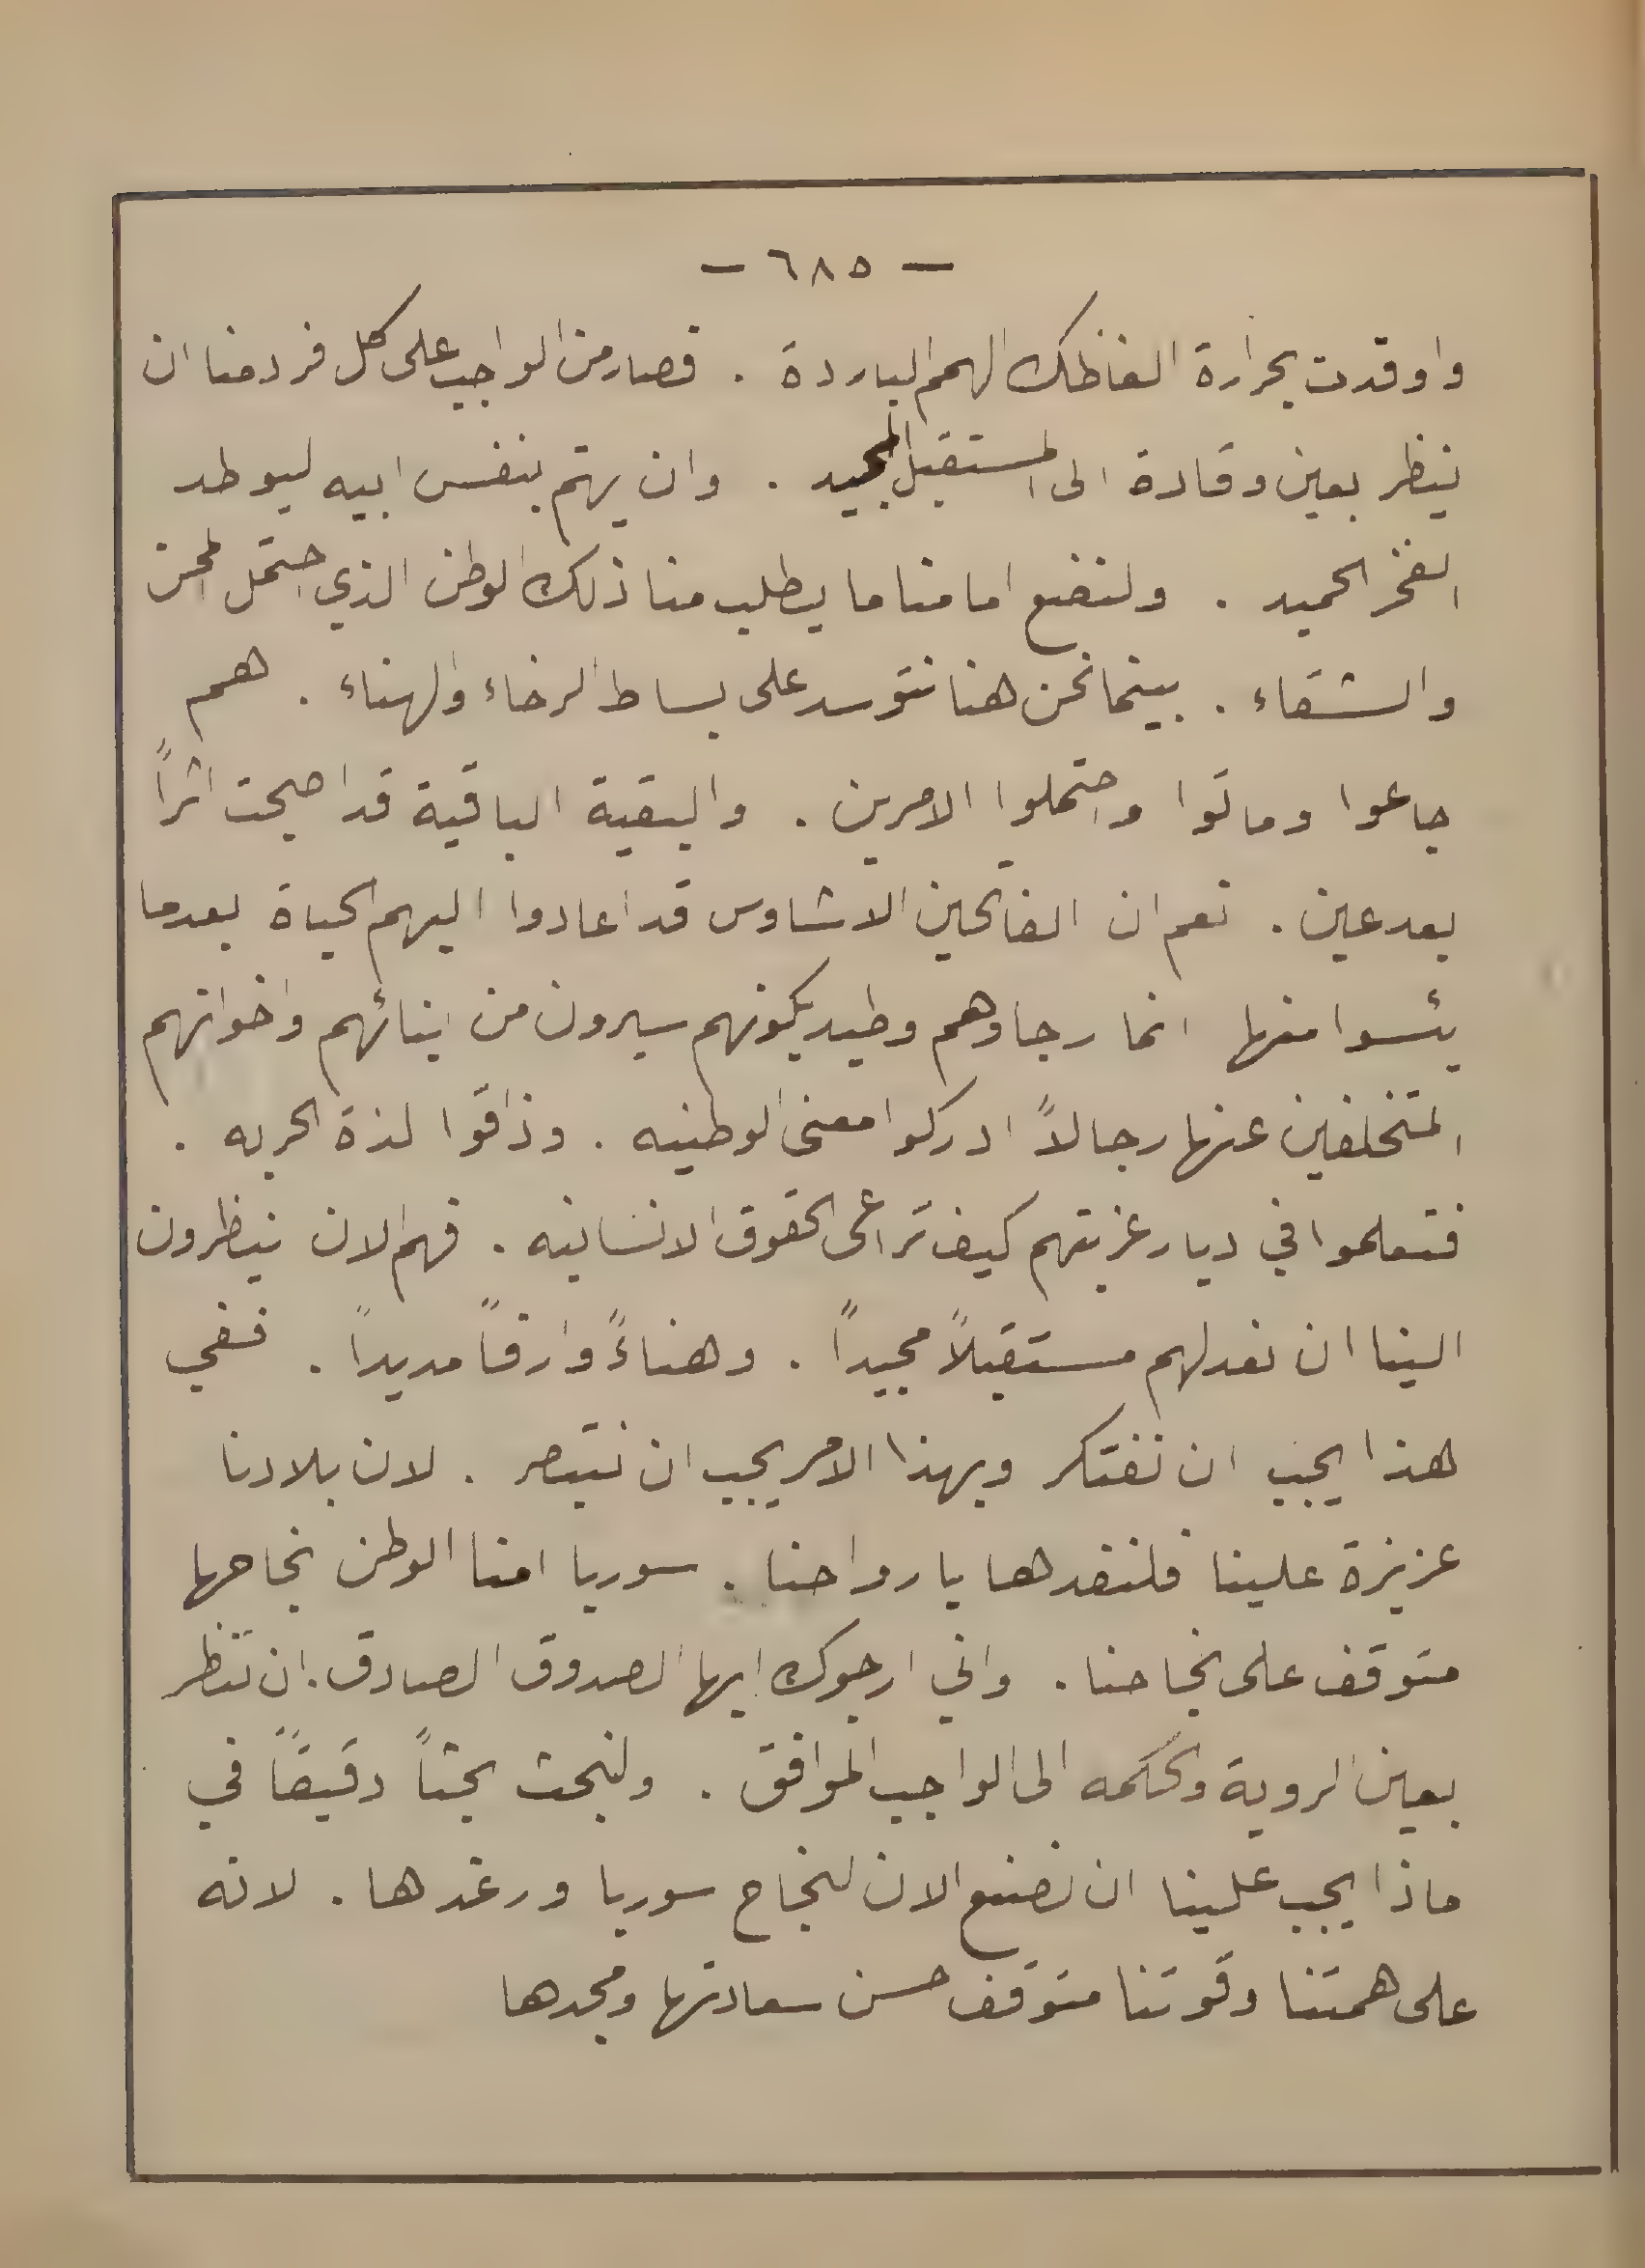 — ٦٨٥ —
واوقدت بحرارة الفاظك الهمم الباردة . فصار من الواجب على كل فرد منا ان
ينظر بعين وقادة الى المستقبل المجيد . وان يهتم بنفس ابيه ليوطد
الفخر الحميد . ولنضع امامنا ما يطلب منا ذلك الوطن الذي احتمل المحن
والشقاء . بينما نحن هنا نتوسد على بساط الرخاء والهناء . هم
جاعوا وماتوا واحتملوا الامرين . والبقية الباقية قد اصبحت اثراً
بعد عين . نعم ان الفاتحين الاشاوس قد اعادوا اليهم الحياة بعدما
يئسوا منها انما رجاوهم وطيد بكونهم سيرون من ابنائهم واخوانهم
المتخلفين عنها رجالاً ادركوا معنى الوطنيه . وذاقوا لذة الحريه .
فتعلموا في ديار غربتهم كيف تراعى الحقوق الانسانيه . فهم الان ينظرون
الينا ان نعد لهم مستقبلاً مجيداً . وهناءً وارفاً مديداً . ففي
هذا يجب ان نفتكر وبهذا الامر يجب ان نتبصر . لان بلادنا
عزيزة علينا فلنفدها بارواحنا . سوريا امنا الوطن نجاحها
متوقف على نجاحنا . واني ارجوك ايها الصدوق الصادق . ان تنظر
بعين الروية والحكمه الى الواجب الموافق . ولنبحث بحثاً دقيقاً في
ماذا يجب علينا ان نصنع الان لنجاح سوريا ورغدها . لانه
على همتنا وقوتنا متوقف حسن سعادتها ومجدها